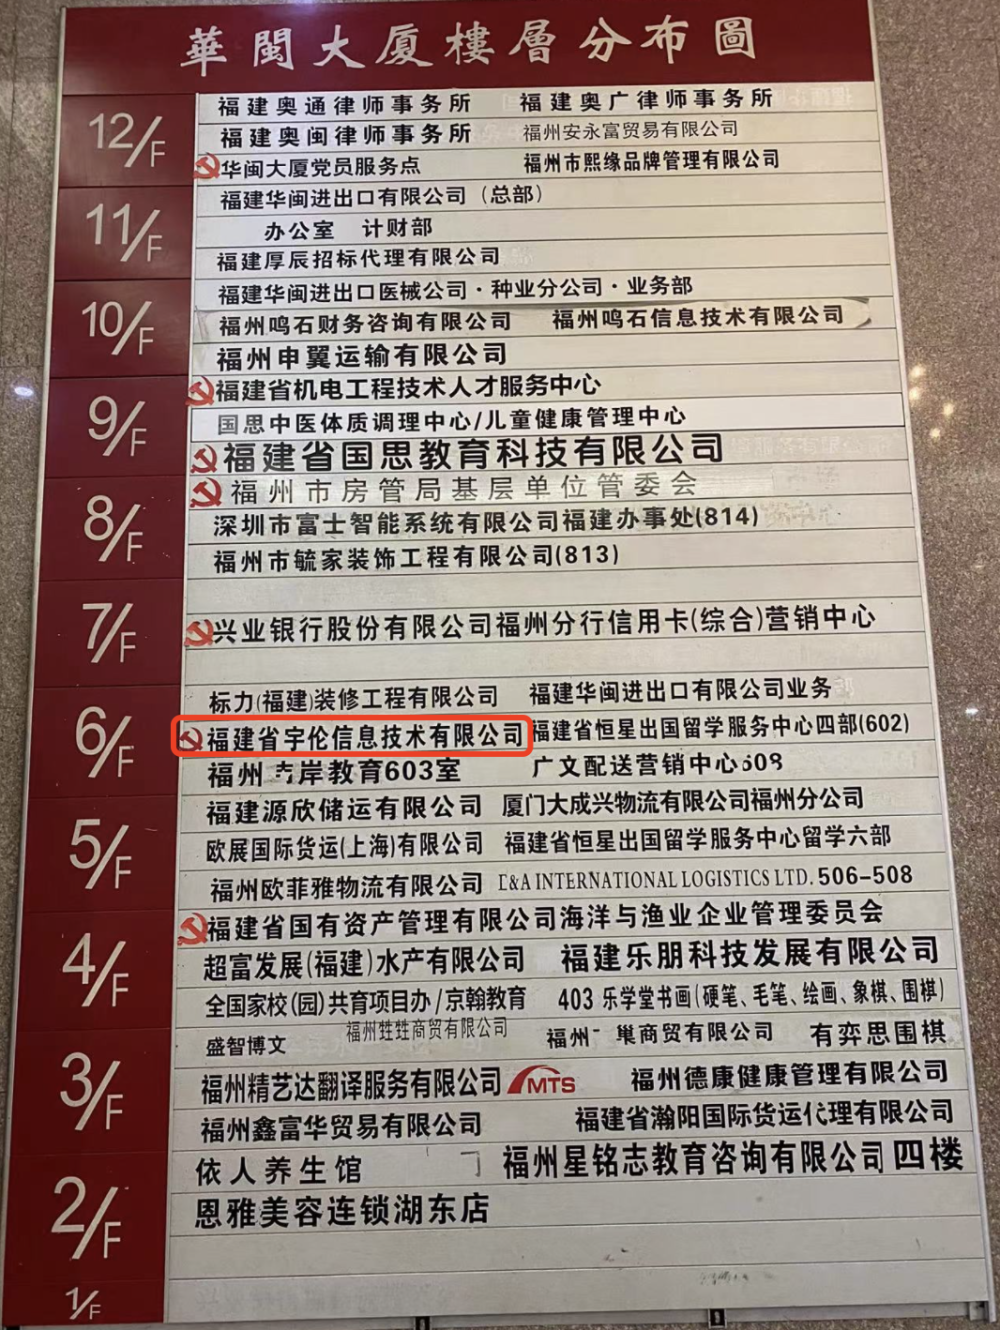 華閩大厦樓層分布圖
12/F
福建奥通律师事务所 福建奥广律师事务所
福建奥闽律师事务所 福州安永富贸易有限公司
华闽大厦党员服务点 福州市熙缘品牌管理有限公司
11/F
福建华闽进出口有限公司（总部）
办公室 计财部
福建厚辰招标代理有限公司
10/F
福建华闽进出口医械公司·种业分公司·业务部
福州鸣石财务咨询有限公司 福州鸣石信息技术有限公司
福州申翼运输有限公司
9/F
福建省机电工程技术人才服务中心
国思中医体质调理中心/儿童健康管理中心
福建省国思教育科技有限公司
8/F
福州市房管局基层单位管委会
深圳市富士智能系统有限公司福建办事处(814)
福州市毓家装饰工程有限公司(813)
7/F
兴业银行股份有限公司福州分行信用卡(综合)营销中心
6/F
标力(福建)装修工程有限公司 福建华闽进出口有限公司业务
福建省宇伦信息技术有限公司 福建省恒星出国留学服务中心四部(602)
福州 岸教育603室 广文配送营销中心608
5/F
福建源欣储运有限公司 厦门大成兴物流有限公司福州分公司
欧展国际货运(上海)有限公司 福建省恒星出国留学服务中心留学六部
福州欧菲雅物流有限公司 &A INTERNATIONAL LOGISTICS LTD. 506-508
4/F
福建省国有资产管理有限公司海洋与渔业企业管理委员会
超富发展(福建)水产有限公司 福建乐朋科技发展有限公司
全国家校(园)共育项目办/京翰教育 403 乐学堂书画(硬笔、毛笔、绘画、象棋、围棋)
盛智博文 福州甡甡商贸有限公司 福州 巢商贸有限公司 有弈思围棋
3/F
福州精艺达翻译服务有限公司 MTS 福州德康健康管理有限公司
福州鑫富华贸易有限公司 福建省瀚阳国际货运代理有限公司
2/F
依人养生馆 福州星铭志教育咨询有限公司四楼
恩雅美容连锁湖东店
1/F